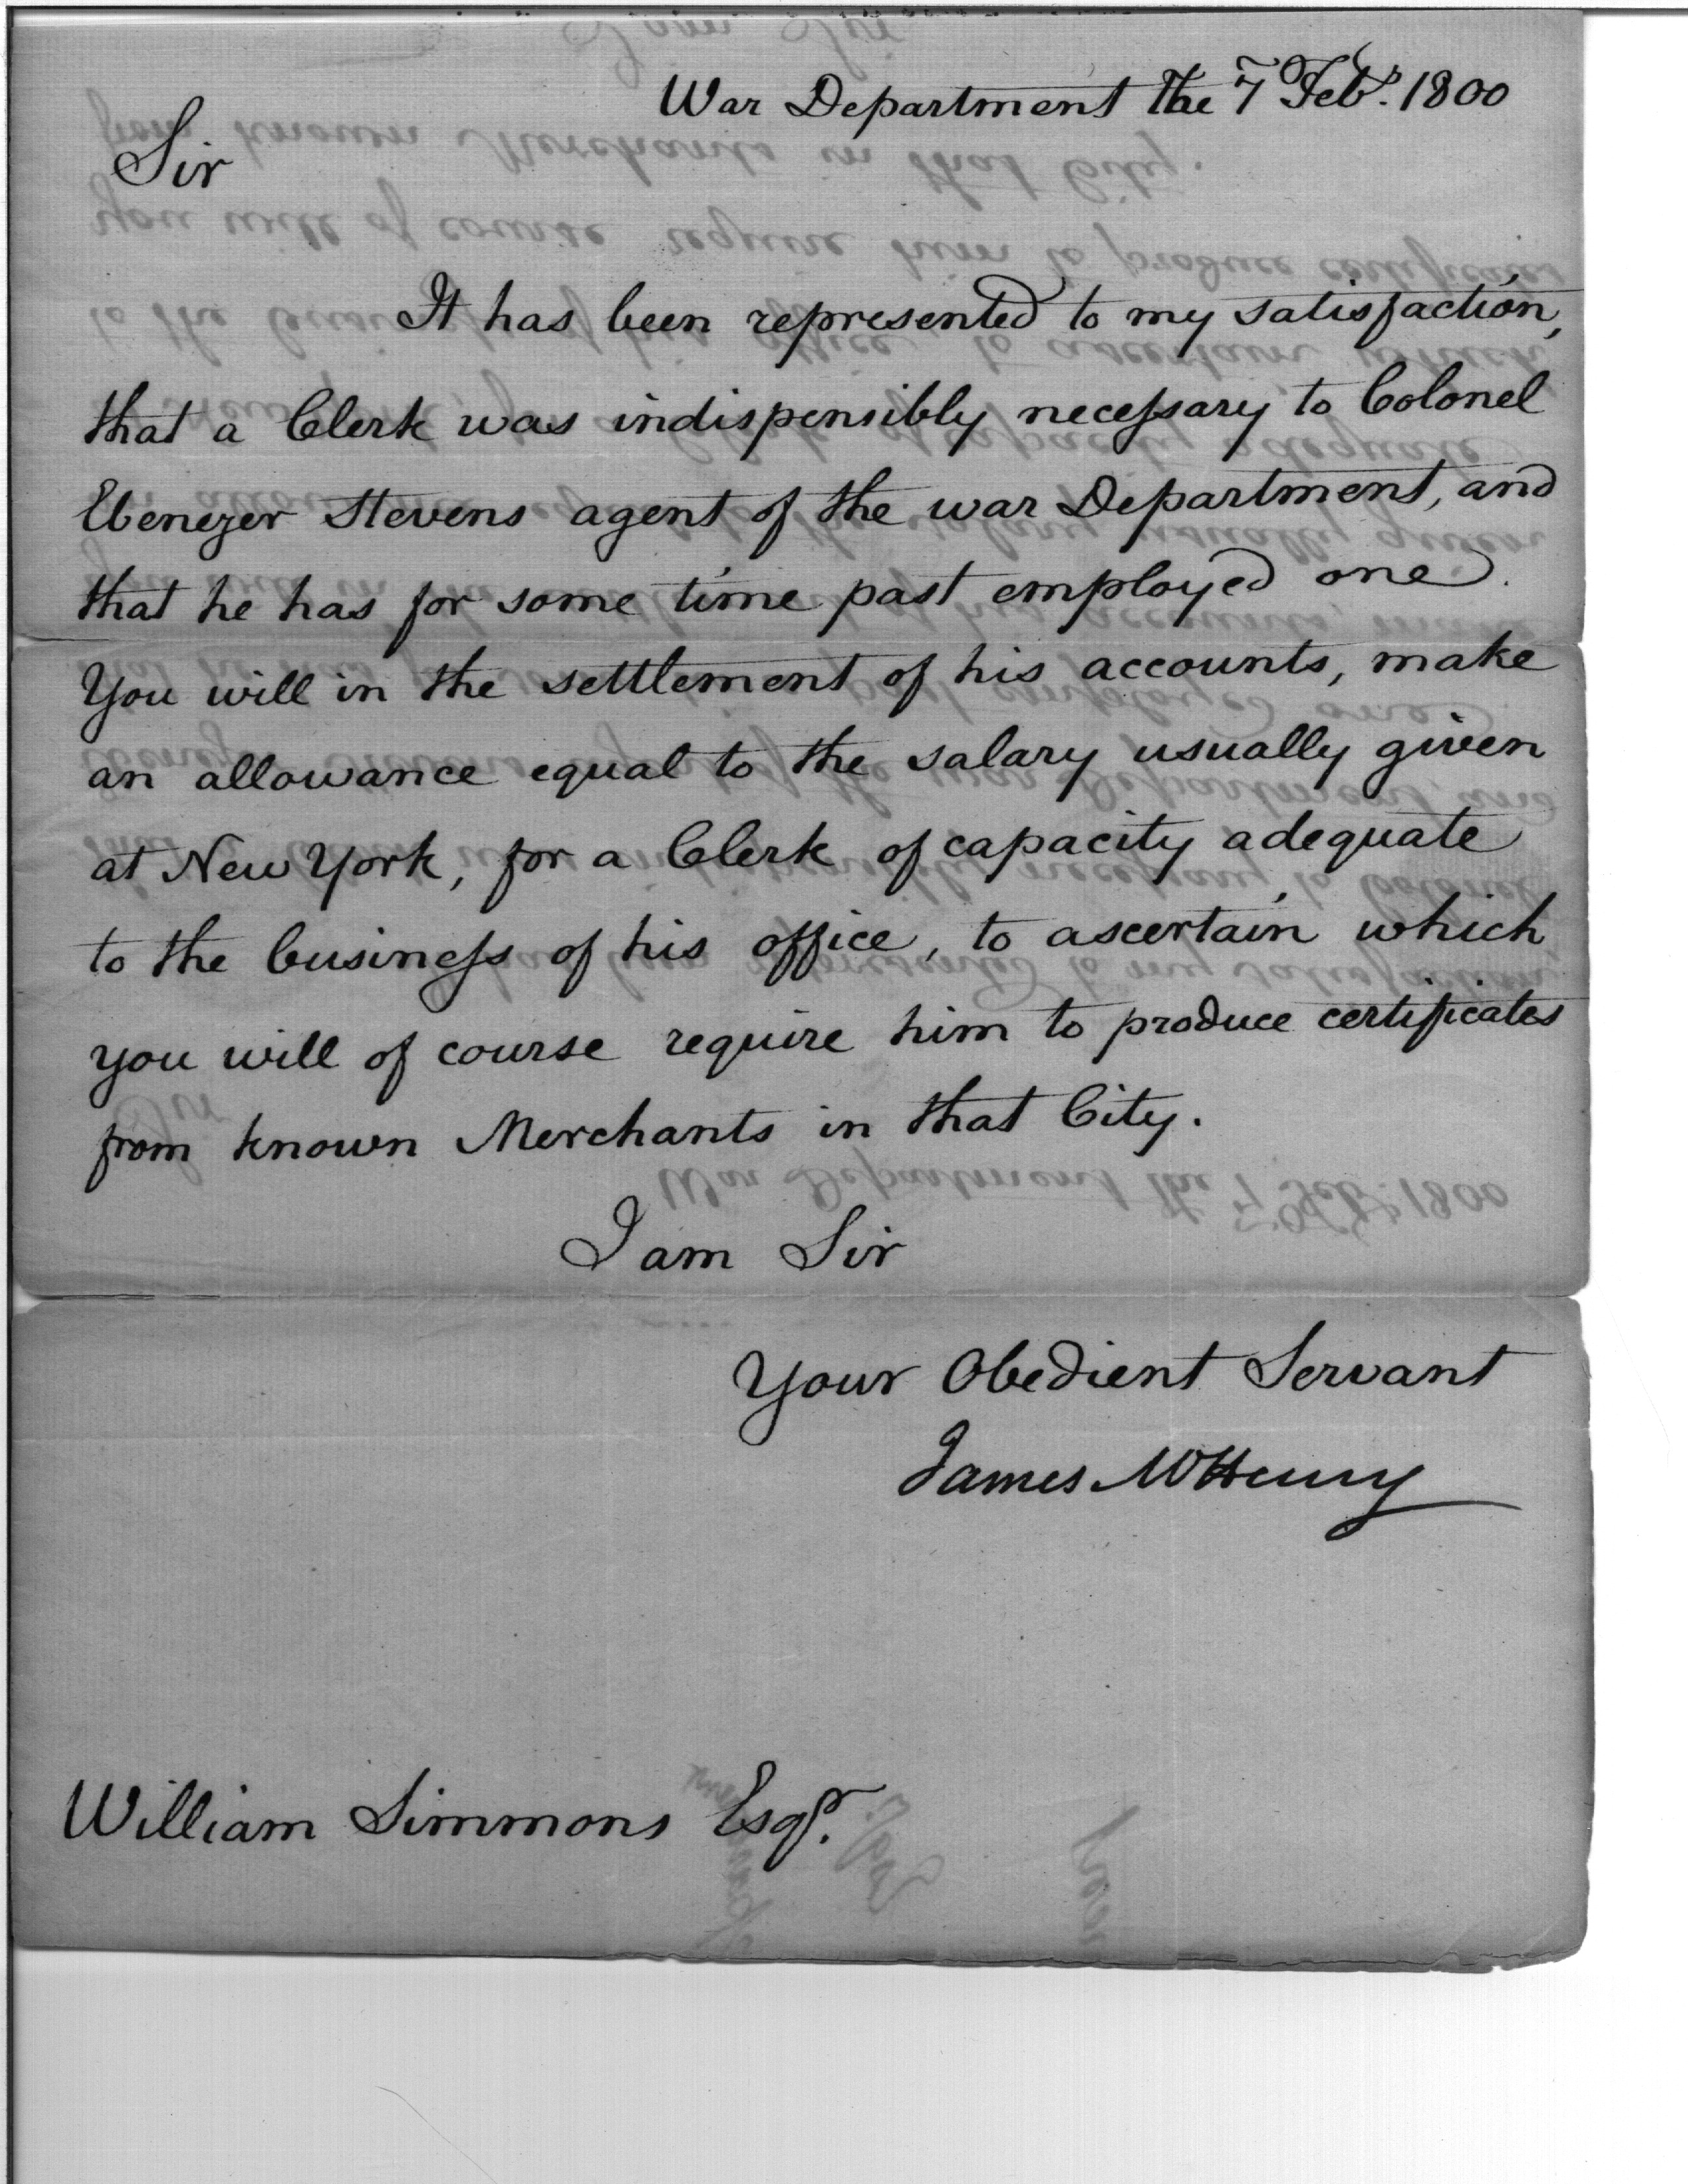 War Department the 7 Feby. 1800
Sir
It has been represented to my satisfaction,
that a Clerk was indispensibly necessary to Colonel
Ebenezer Stevens agent of the war Department, and
that he has for some time past employed one.
You will in the settlement of his accounts, make
an allowance equal to the salary usually given
at New York, for a Clerk of capacity adequate
to the business of his office, to ascertain which
you will of course require him to produce certificates
from known Merchants in that City.
I am Sir
Your Obedient Servant
James McHenry
William Simmons Esqr.